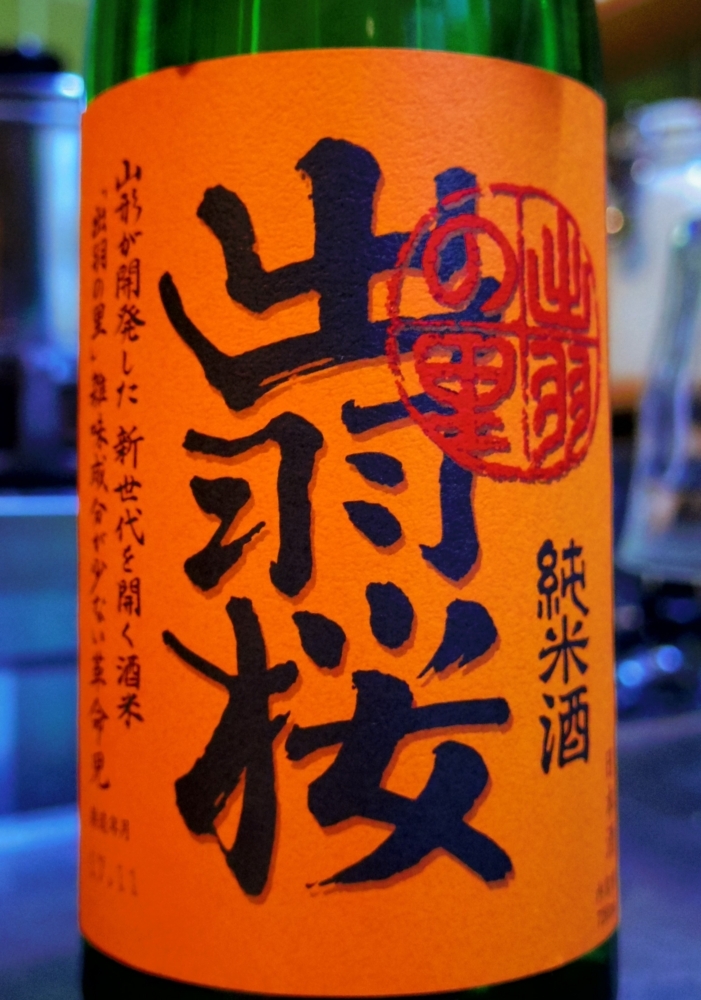 出羽桜
出羽の里
純米酒
山形が開発した 新世代を開く酒米
「出羽の里」雑味成分が少ない革命児
製造年月
17.11
日本酒